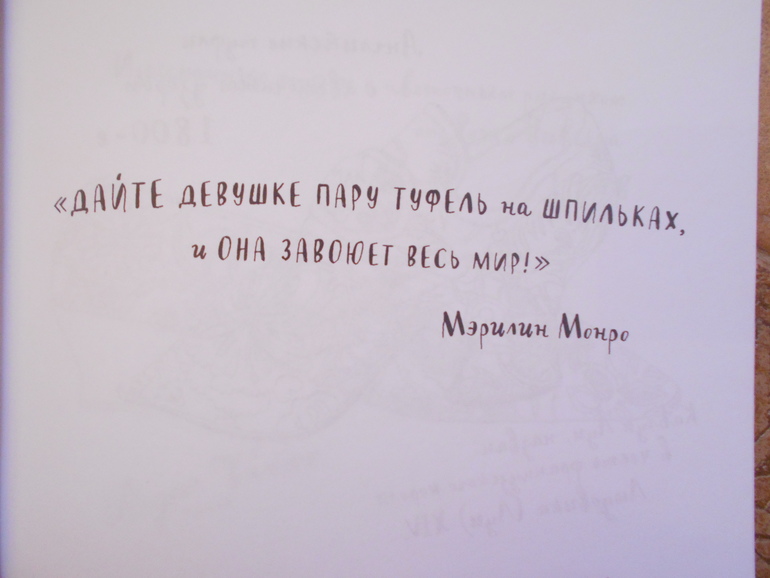 «ДАЙТЕ ДЕВУШКЕ ПАРУ ТУФЕЛЬ на ШПИЛЬКАХ,
и ОНА ЗАВОЮЕТ ВЕСЬ МИР!»
Мэрилин Монро